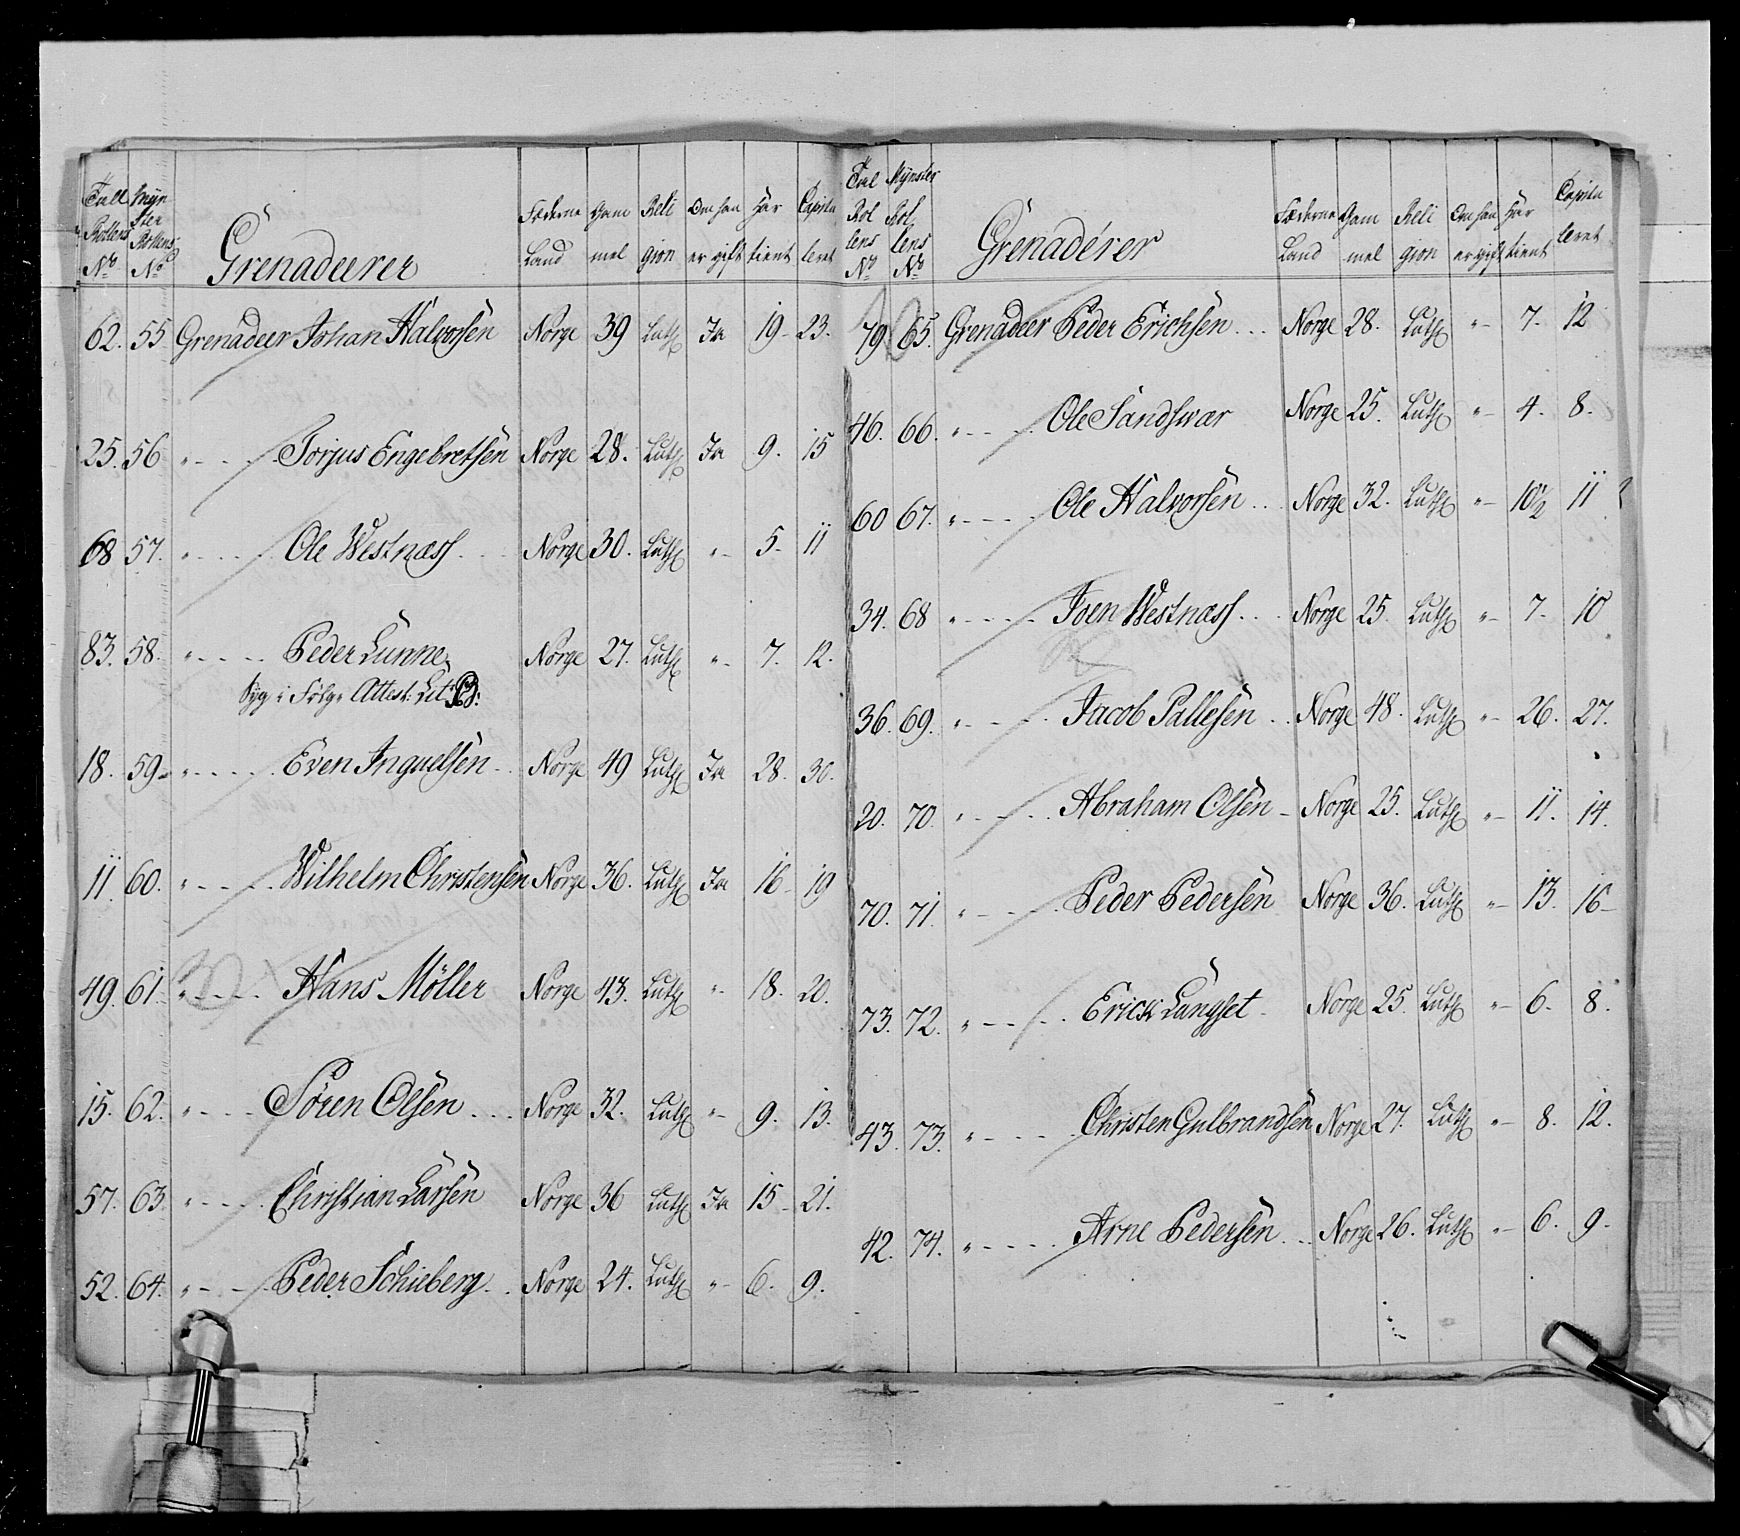 Tall Rollens No Mynster Rollens No Grenadeerer Fæderne Land Gammel Religion Om han er gift Har tient Capituleret
62. 55 Grenadeer Johan Halvorsen Norge 39 Luth Ja 19 - 23.
25. 56 " - - - Torjus Engebretsen Norge 28. Luth Ja 9. 15
68 57. " - - - Ole Westnæss Norge 30. Luth " - 5 - 11
83. 58. " - - - Peder Lunne Norge 27. Luth " - 7. 12.
Syg i Følge Attest: Lit: B:
18. 59 " - - - Even Inguelsen Norge 49 Luth Ja 28. 30.
11 60. " - - - Wilhelm Christensen Norge 36. Luth Ja 16 - 19
49. 61. " - - - Hans Möller Norge 43. Luth " - 18. 20.
15. 62. " - - - Sören Olsen Norge 32. Luth " - 9. 13.
57. 63 " - - - Christian Larsen Norge 36 Luth Ja 15 - 21.
52. 64. " - - - Peder Schieberg Norge 24. Luth " - 6. 9.
Tal Rollens No Mynster Rollens No Grenadérer Fæderne Land Gammel Religion Om han er gift Har tient Capituleret
79 65. Grenadeer Peder Erichsen Norge 28. Luth " - 7. 12
46. 66. " - - - Ole Sandswær Norge 25. Luth " - 4. 8.
60 67. " - - - Ole Halvorsen Norge 32. Luth " - 10 1/2 11
34. 68 " - - - Iven Westnæss Norge 25. Luth " - 7 - 10
36. 69. " - - - Jacob Pallesen Norge 48. Luth " - 26. 27.
20. 70. " - - - Abraham Olsen Norge 25. Luth " - 11. 14.
70. 71. " - - - Peder Pedersen Norge 36. Luth " - 13. 16 -
73. 72. " - - - Erick Langset Norge 25. Luth " - 6. 8.
43. 73. " - - - Christen Gulbrandsen Norge 27. Luth " - 8. 12.
42. 74. " - - - Arne Pedersen Norge 26. Luth " - 6. 9 -